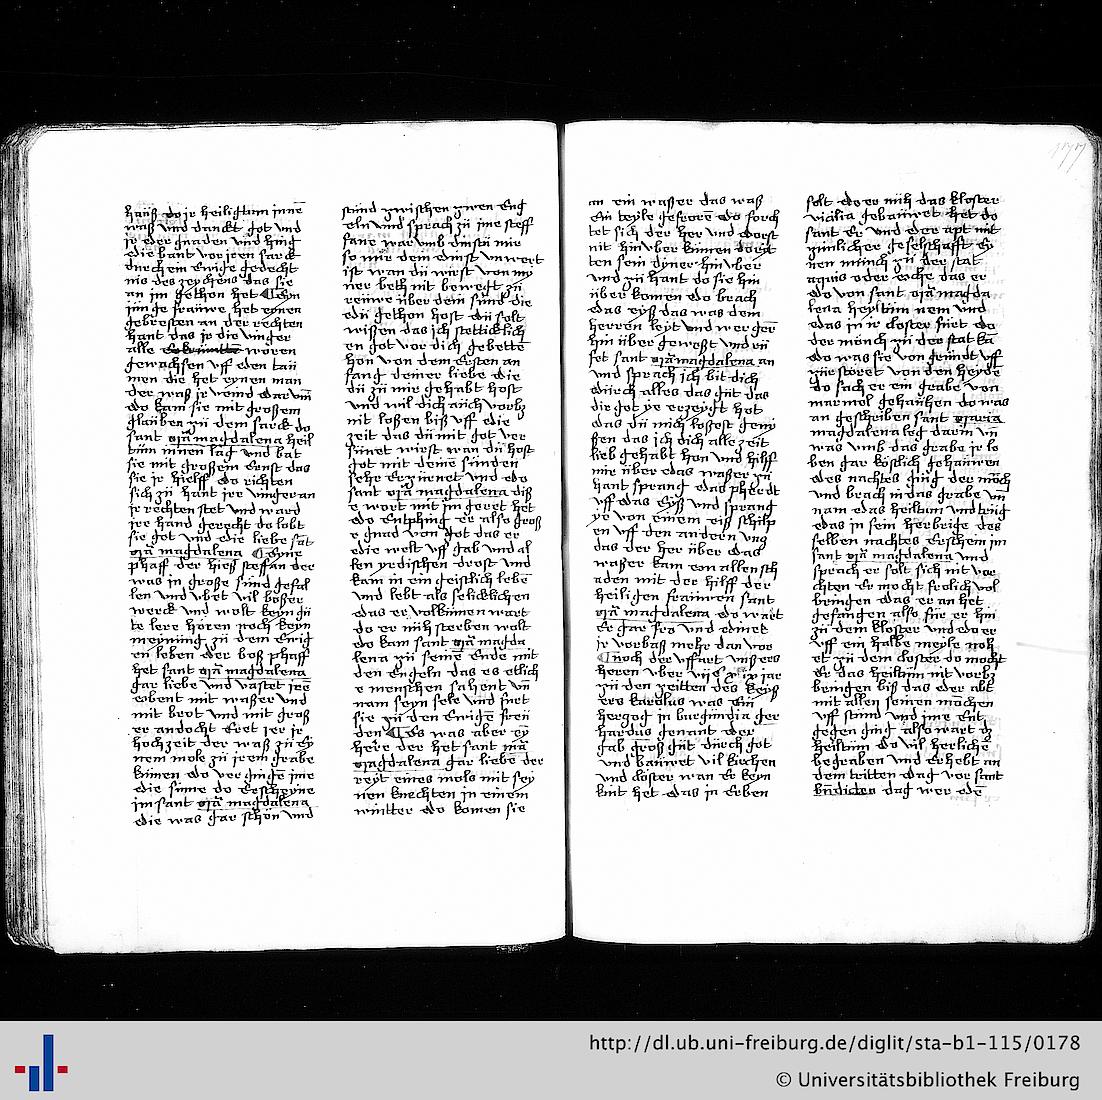 hauß do jr heiligtum inne
waß und danckt got und
jr der gnaden und hing
die bant vor jren sarck
durch ein ewige gedecht
nis des zeychens das sie
an jm gethon het ¶ Eyn
junge frauwe het eynen
gebresten an der rechten
hant das jr die vinger
alle woren
gewachsen uff eden
men die het eynen man
der waß jr darum
do kam sie mit großem
glauben zu dem sarck do
sant mā magdalena heil
tum innen lag und bat
sie mit großem ernst das
sie jr hielff do richten
sich zu hant jre vinger an
jr rechten stet und ward
jre hand gerecht do lobt
sie got und die liebe sāt
mā magdalena ¶ Eyne
phaff der hieß steffan der
was in große sund gefal
len und ubet vil boßer
werck und wolt keyn gu
te lere hören noch keyn
meynung zu dem ewig
en leben der boß phaff
het sant mā magdalena
gar liebe und vastet jrē
obent mit waßer und
mit brot und mit groß
er andocht eret jer jr
hochzeit der waß zu ey
nem mole zu jrem grabe
kumen do vergingē jme
die sinne do erscheyne
jm sant mā magdalena
die was gar schön und
stund zwischen zwen eng
eln und sprach zu jme steff
fane warumb dinstu mir
so mir dein dinst unwert
ist wan du wirst von my
ner beth nit bewegt zu
reuwe über dein sund die
du gethon host du solt
wißen das ich stetticklich
en got vor dich gebettē
hon von dem ersten an
fang deiner liebe die
du zu mir gehabt host
und wil dich auch vorbz
nit loßen biß uff die
zeit das du mit got ver
sunet wirst wan du host
got mit deinē sunden
sehr erzurnet und do
sant mā magdalena diß
e wort mit jm geret het
do entphing er also groß
e gnad von got das er
die welt uff gab und al
len yrdischen drost und
kam in ein geistlich lebē
und lebt als selicklichen
das er volkumen wart
do er nuh sterben wolt
do kam sant mā magda
lena zu seinē ende mit
den engeln das es etlich
e menschen sahent uñ
nam seyn sele und furt
sie zu den ewigē freu
den ¶ Es was aber ey
here der het sant mā
magdalena gar liebe der
reyt eines mols mit sey
nen knechten jn einem
wintter do komen sie
an ein waßer das waß
ein teyle gefrore do forch
tet sich der her und dorst
nit hin uber kumen dorst
ten sein dyner hin uber
und zu hant do sie hin
über komen do brach
das eyß das was dem
herren leyt und wer gern
hin über geweßt und ru
fet sant mā magdalena an
und sprach ich bit dich
durch alles das gut das
dir got ye erzeygt het
das du mich loßest geny
ßen das ich dich alle zeit
lieb gehabt hon und hilff
mir über das waßer zu
hant sprang das pherdt
uff das eyß und sprang
ye von einem eiß schilp
en uff den andern unz
das der her über das
waßer kam von allen sch
aden mit der hilff der
heiligen frauwen sant
mā magdalena do wart
er gar fro und dinet
jr vorbaß mehr dan vor
¶ noch der uffart unßers
heren uber vii jar
zu den zeitten des keyß
ers karolus was ein
herzog in burgundia ger
hardus genant der
gab groß gut durch got
und bauwet vil kirchen
und closter wan er keyn
kint het das jn erben
solt do er nuh das kloster
vicilia gebauwet het do
sant er und der apt mit
zimlicher geselschafft ey
nen munch zu der stat
aquis oder esche das er
do von sant mā magda
lena heyltum nem und
das in jr closter furt do
der monch zu der stat kā
do was sie von grundt uff
zurstoret von den heyde
do sach er ein grabe von
marmol gehauben do was
an geschriben sant maria
magdalena leg darin uñ
was umb das grabe jr le
ben gar köstlich gehauwen
des nachtes ging der mōch
und brach in das grabe uñ
nam das heiltum und trug
das in sein herberge des
selben nachtes erschein jm
sant mā magdalena und
sprach er solt sich nit vor
chten er mocht frolich vol
bringen das er an het
gefangen also fur er hin
zu dem kloster und do er
uff ein halbe meyle noh
et zu dem closter do mocht
er das heiltum nit vorbz
bringen biß das der abt
mit allen seinen munchen
uff stund und jme ent
gegen ging also wart dz
heiltum do vil herliche
begraben und erhebt an
dem tritten dag vor sant
bndicten dag wer dē
177
http://dl.ub.uni-freiburg.de/diglit/sta-b1-115/0178
© Universitätsbibliothek Freiburg